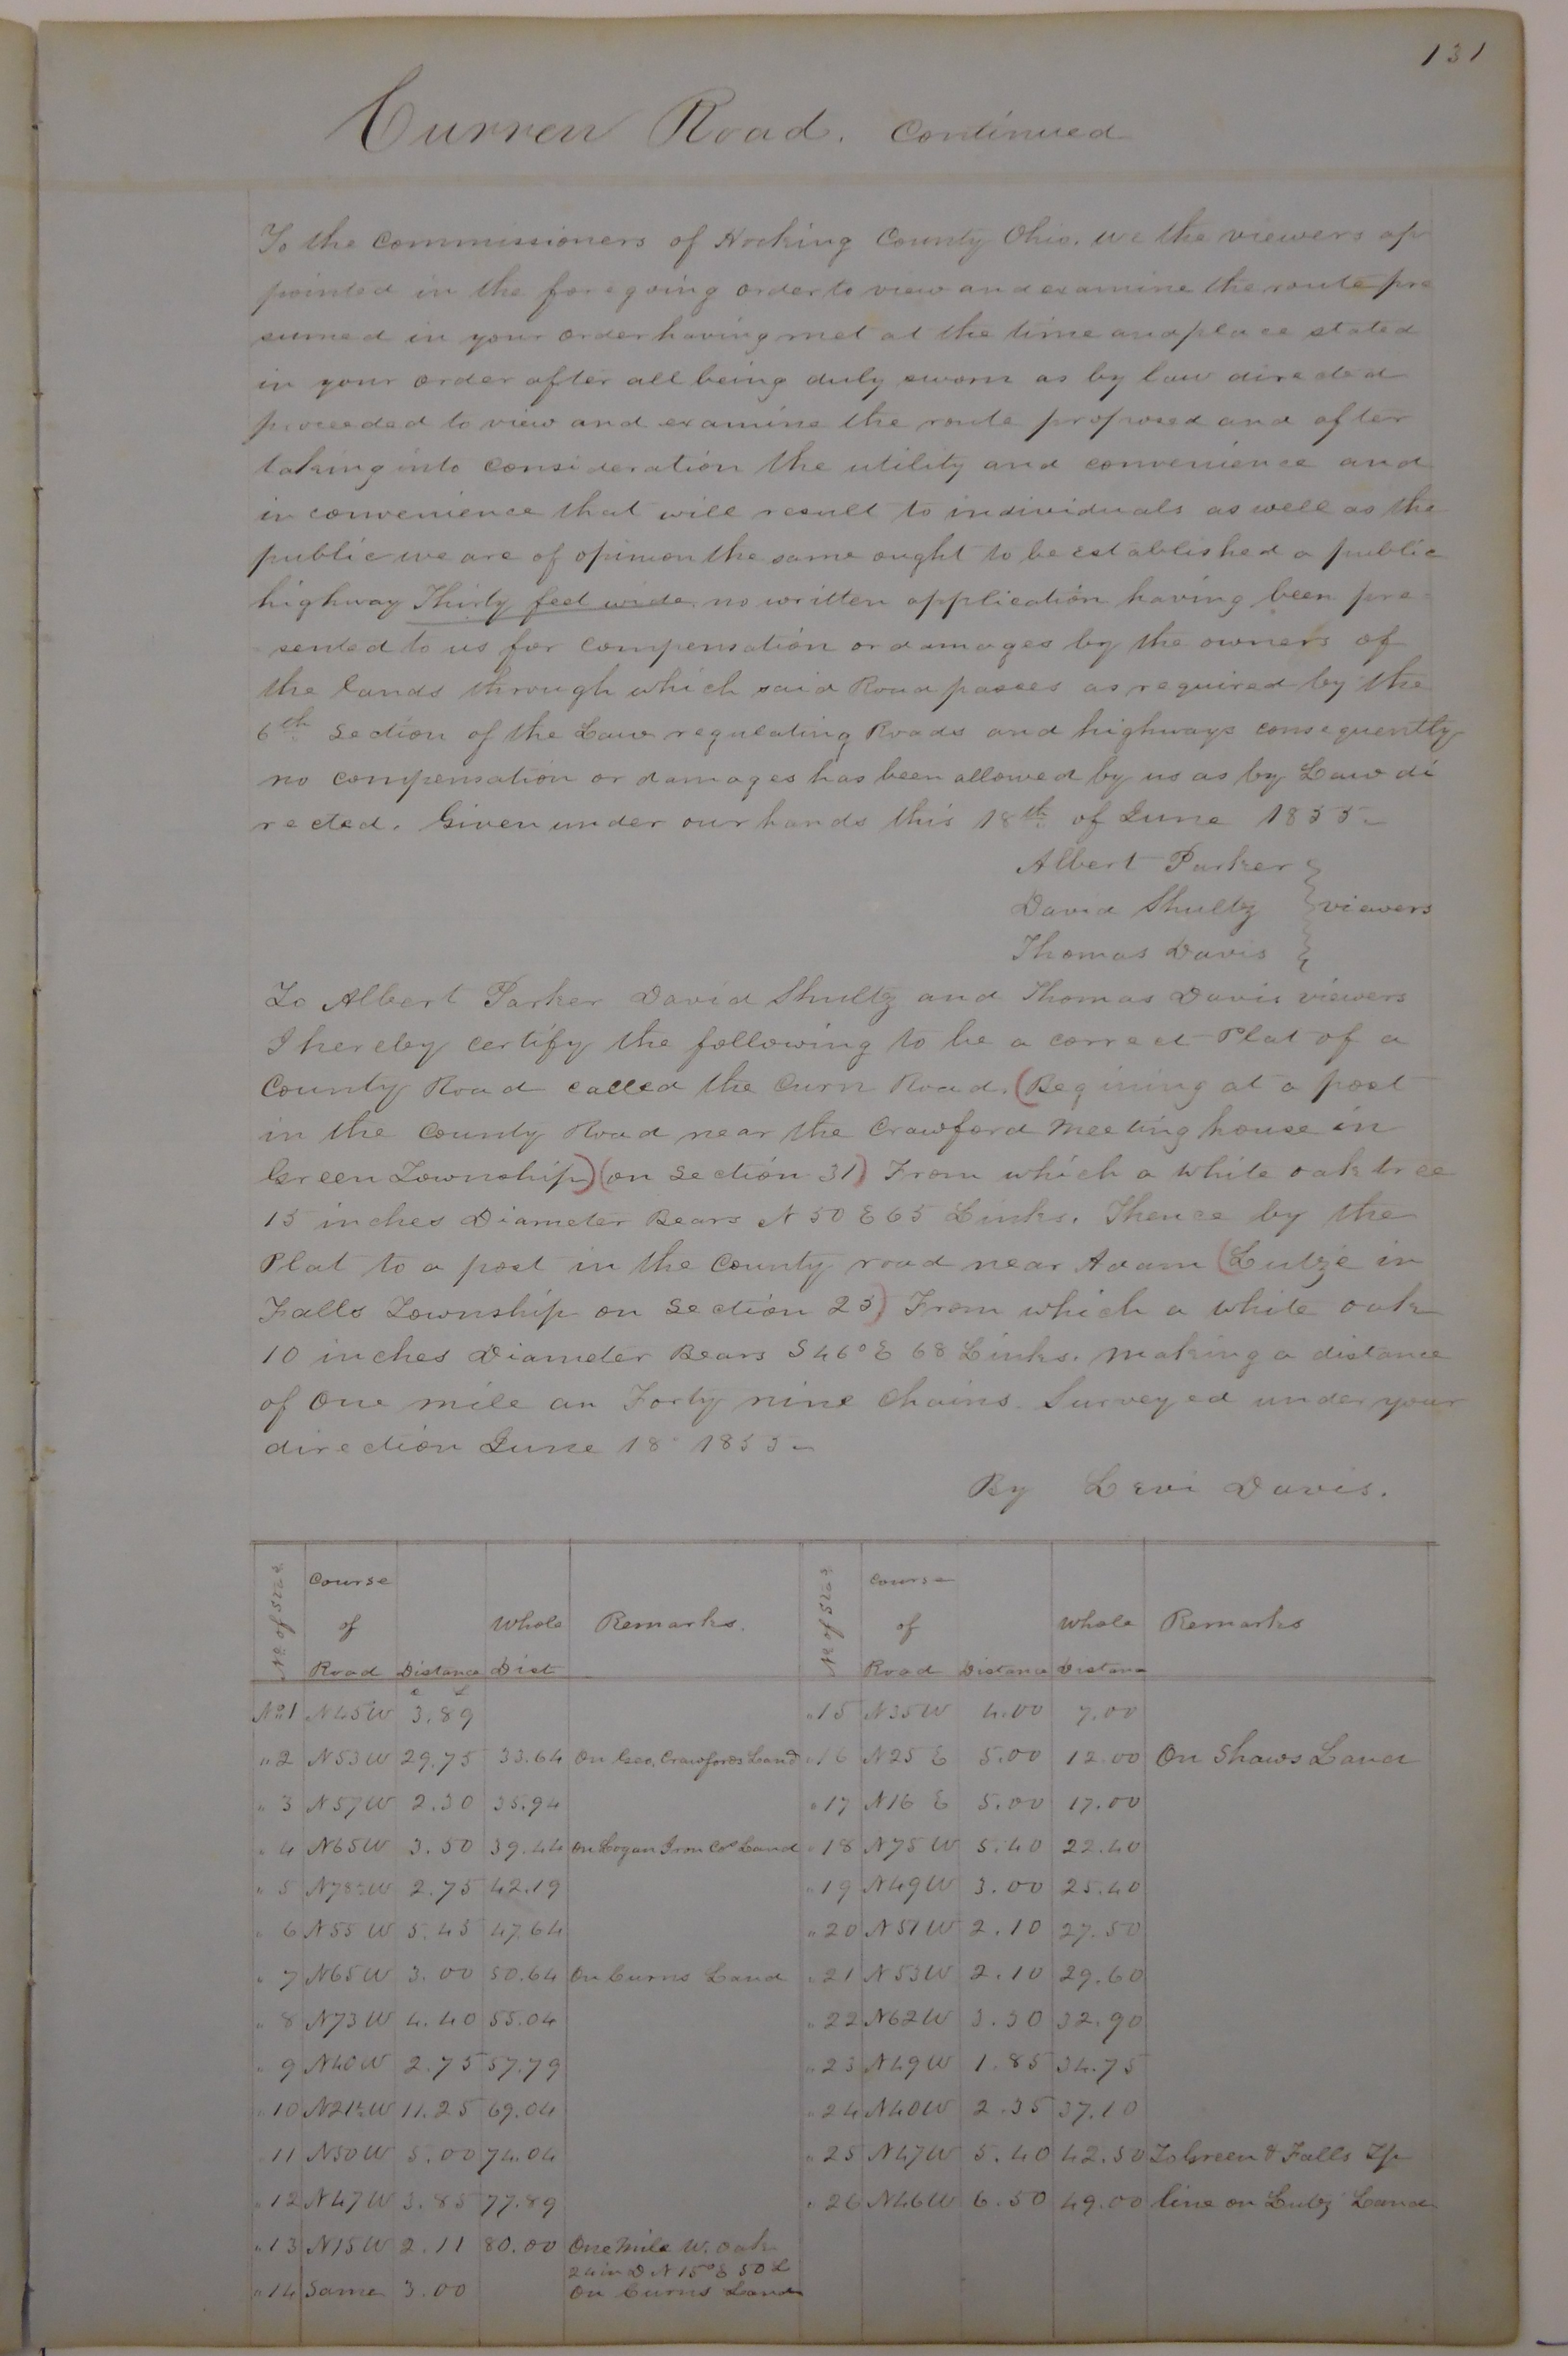 131
Curren Road. Continued
To the Commissioners of Hocking County Ohio. We the viewers ap
pointed in the foregoing order to view and examine the route pre
sumed in your order having met at the time and place stated
in your order after all being duly sworn as by law directed
proceeded to view and examine the route proposed and after
taking into consideration the utility and convenience and
in convenience that will result to individuals as well as the
public we are of opinion the same ought to be established a public
highway Thirty feet wide. no written application having been pre-
sented to us for compensation or damages by the owners of
the lands through which said Road passes as required by the
6th Section of the Law regulating Roads and highways consequently
no compensation or damages has been allowed by us as by Law di
rected. Given under our hands this 18th of June 1855-
Albert Parker
David Shultz } viewers
Thomas Davis
To Albert Parker David Shultz and Thomas Davis viewers
I hereby certify the following to be a correct Plat of a
County Road called the Curn Road. (Begining at a post
in the County Road near the Crawford Meeting house in
Green Township) (on Section 31) From which a White oak tree
15 inches Diameter Bears N 50 E 65 Links. Thence by the
Plat to a post in the County road near Adam (Lutz's in
Falls Township on Section 25) From which a White oak
10 inches Diameter Bears S 46° E 68 Links. Making a distance
of One mile an Forty nine Chains. Surveyed under your
direction June 18 1855-
By Levi Davis.
No. of Sta Course of Road Distance Whole Dist Remarks. No. of Sta Course of Road Distance Whole Distance Remarks
C L
No 1 N45W 3.89 " 15 N35W 4.00 7.00
" 2 N53W 29.75 33.64 On Geo. Crawfords Land " 16 N25 E 5.00 12.00 On Shaws Land
" 3 N57W 2.30 35.94 " 17 N16 E 5.00 17.00
" 4 N65W 3.50 39.44 On Logan Iron Cos Land " 18 N75W 5.40 22.40
" 5 N78½W 2.75 42.19 " 19 N49W 3.00 25.40
" 6 N55W 5.45 47.64 " 20 N51W 2.10 27.50
" 7 N65W 3.00 50.64 On Curns Land " 21 N53W 2.10 29.60
" 8 N73W 4.40 55.04 " 22 N62W 3.30 32.90
" 9 N40W 2.75 57.79 " 23 N49W 1.85 34.75
" 10 N21½W 11.25 69.04 " 24 N40W 2.35 37.10
" 11 N30W 5.00 74.04 " 25 N47W 5.40 42.50 To Green & Falls Tp
" 12 N47W 3.85 77.89 " 26 N46W 6.50 49.00 line on Lutz' Land
" 13 N15W 2.11 80.00 One Mile W. Oak
24 in D N 15° E 50 L
" 14 Same 3.00 On Curns Land